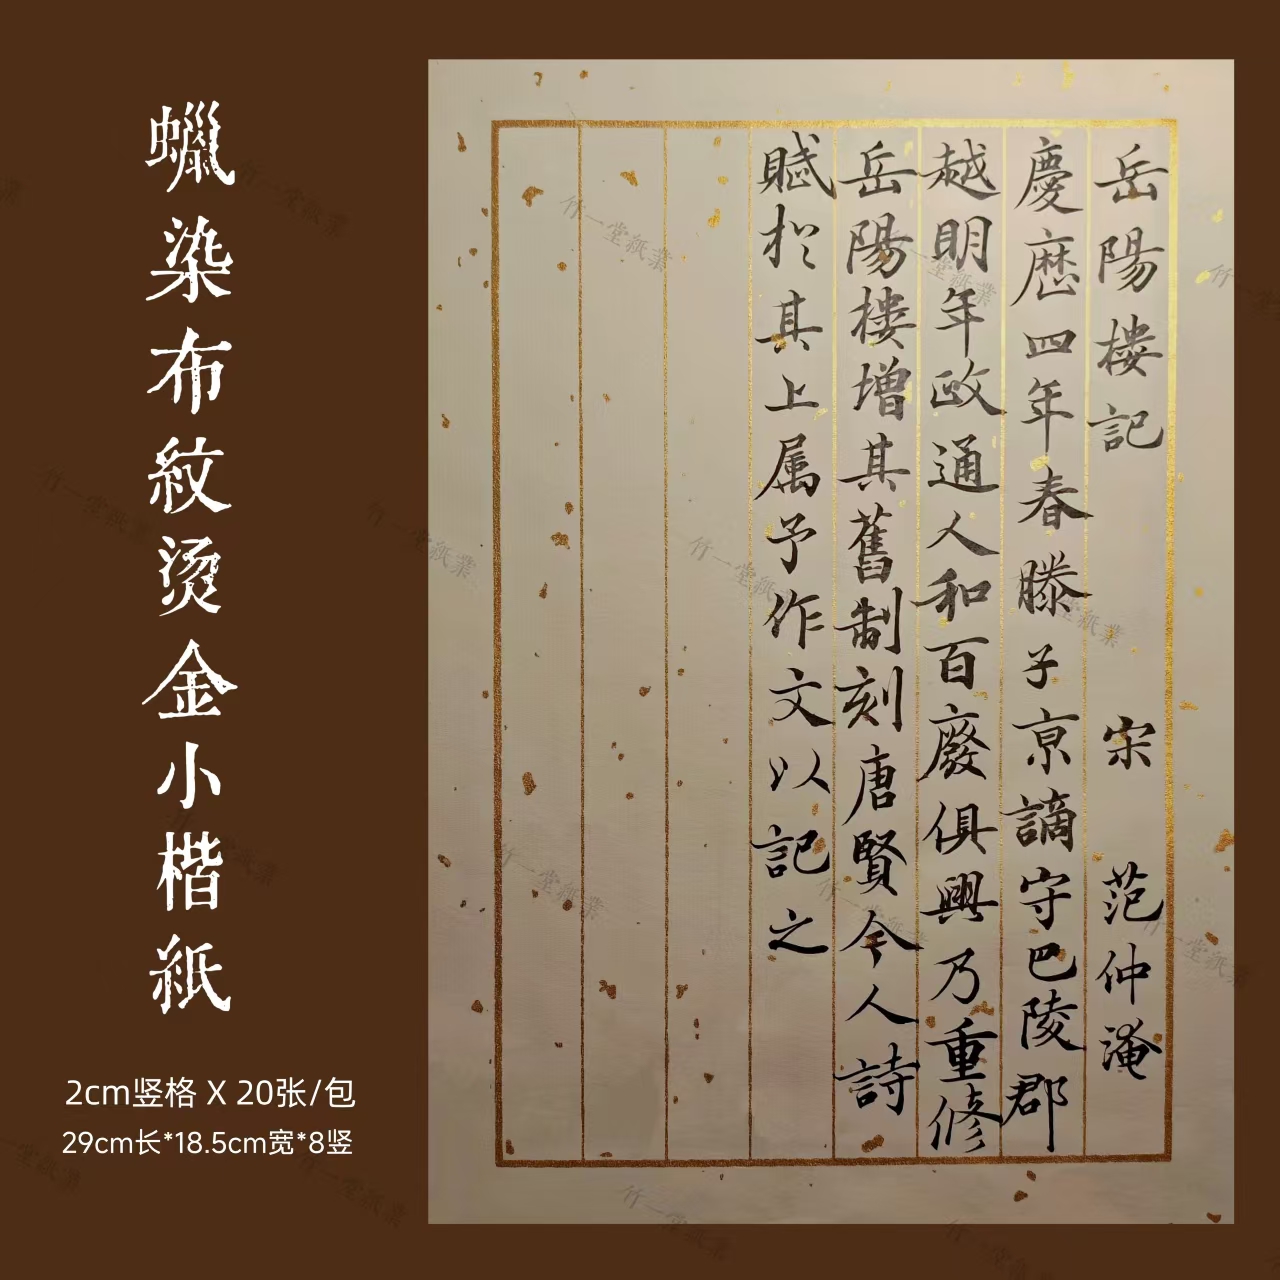 蠟染布紋燙金小楷紙
2cm竖格 X 20张/包
29cm长*18.5cm宽*8竖
岳陽楼記 宋 范仲淹
慶歷四年春滕子京謫守巴陵郡
越明年政通人和百廢俱興乃重修
岳陽楼增其舊制刻唐賢今人詩
賦扵其上属予作文以記之
竹一堂紙業